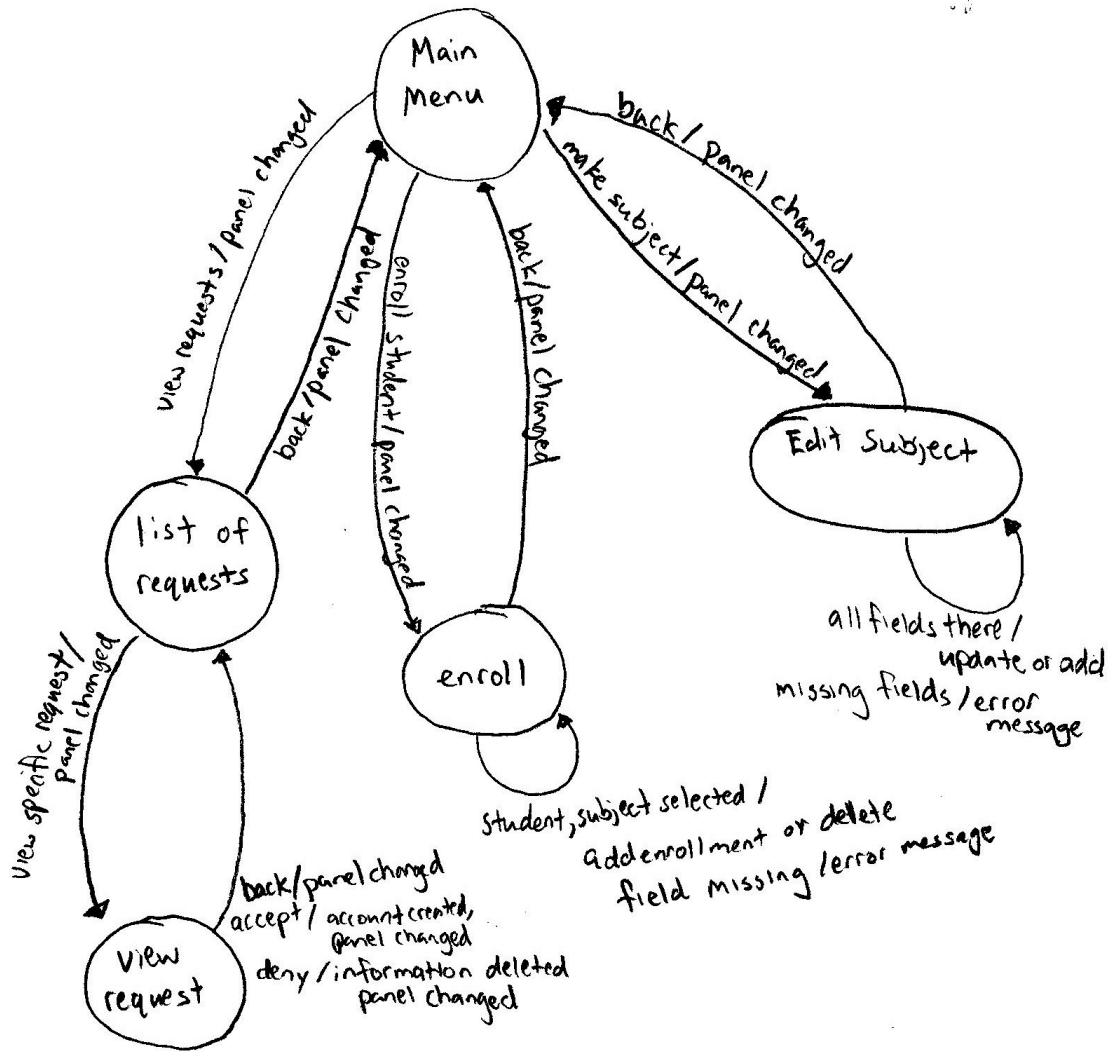 Main
Menu
back/panel changed
make subject/panel changed
view requests/panel changed
back/panel changed
enroll student/panel changed
back/panel changed
Edit Subject
list of
requests
all fields there/
update or add
missing fields/error
message
enroll
view specific request/
panel changed
student, subject selected/
add enrollment or delete
field missing/error message
back/panel changed
accept/account created,
panel changed
deny/information deleted
panel changed
view
request